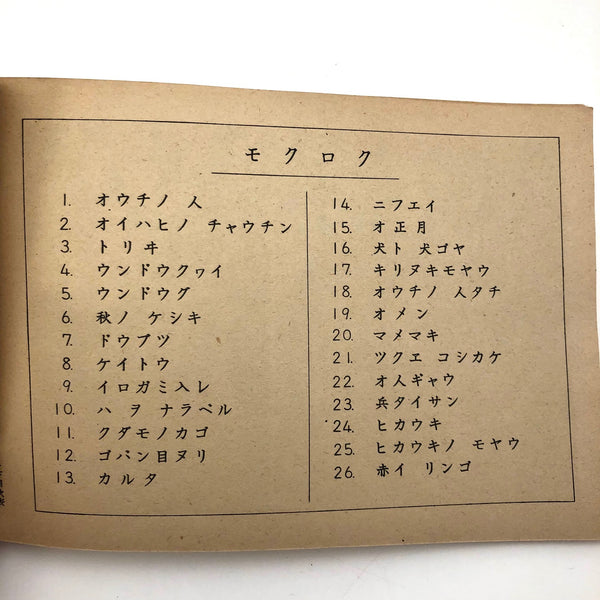 モクロク
1. オウチノ 人
2. オイハヒノ チャウチン
3. トリヰ
4. ウンドウクヮイ
5. ウンドウグ
6. 秋ノ ケシキ
7. ドウブツ
8. ケイトウ
9. イロガミ入レ
10. ハ ヲ ナラベル
11. クダモノカゴ
12. ゴバン目ヌリ
13. カルタ
14. ニフエイ
15. オ正月
16. 犬ト 犬ゴヤ
17. キリヌキモヤウ
18. オウチノ 人タチ
19. オメン
20. マメマキ
21. ツクエ コシカケ
22. オ人ギャウ
23. 兵タイサン
24. ヒカウキ
25. ヒカウキノ モヤウ
26. 赤イ リンゴ